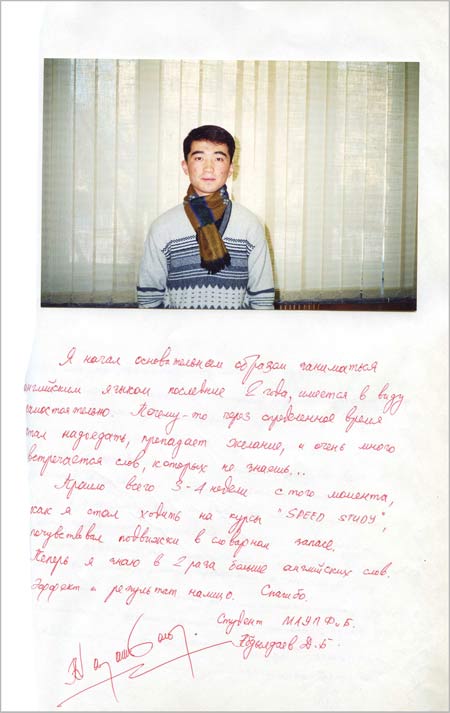 Я начал основательным образом заниматься
английским языком последние 2 года, имеется в виду
самостоятельно. Почему-то через определенное время
стал надоедать, пропадает желание, и очень много
встречается слов, которых не знаешь...
Прошло всего 3-4 недели с того момента,
как я стал ходить на курсы "SPEED STUDY",
почувствовал подвижки в словарном запасе.
Теперь я знаю в 2 раза больше английских слов.
Эффект и результат налицо. Спасибо.
Студент МАУПФиБ.
Абдылдаев Д.Б